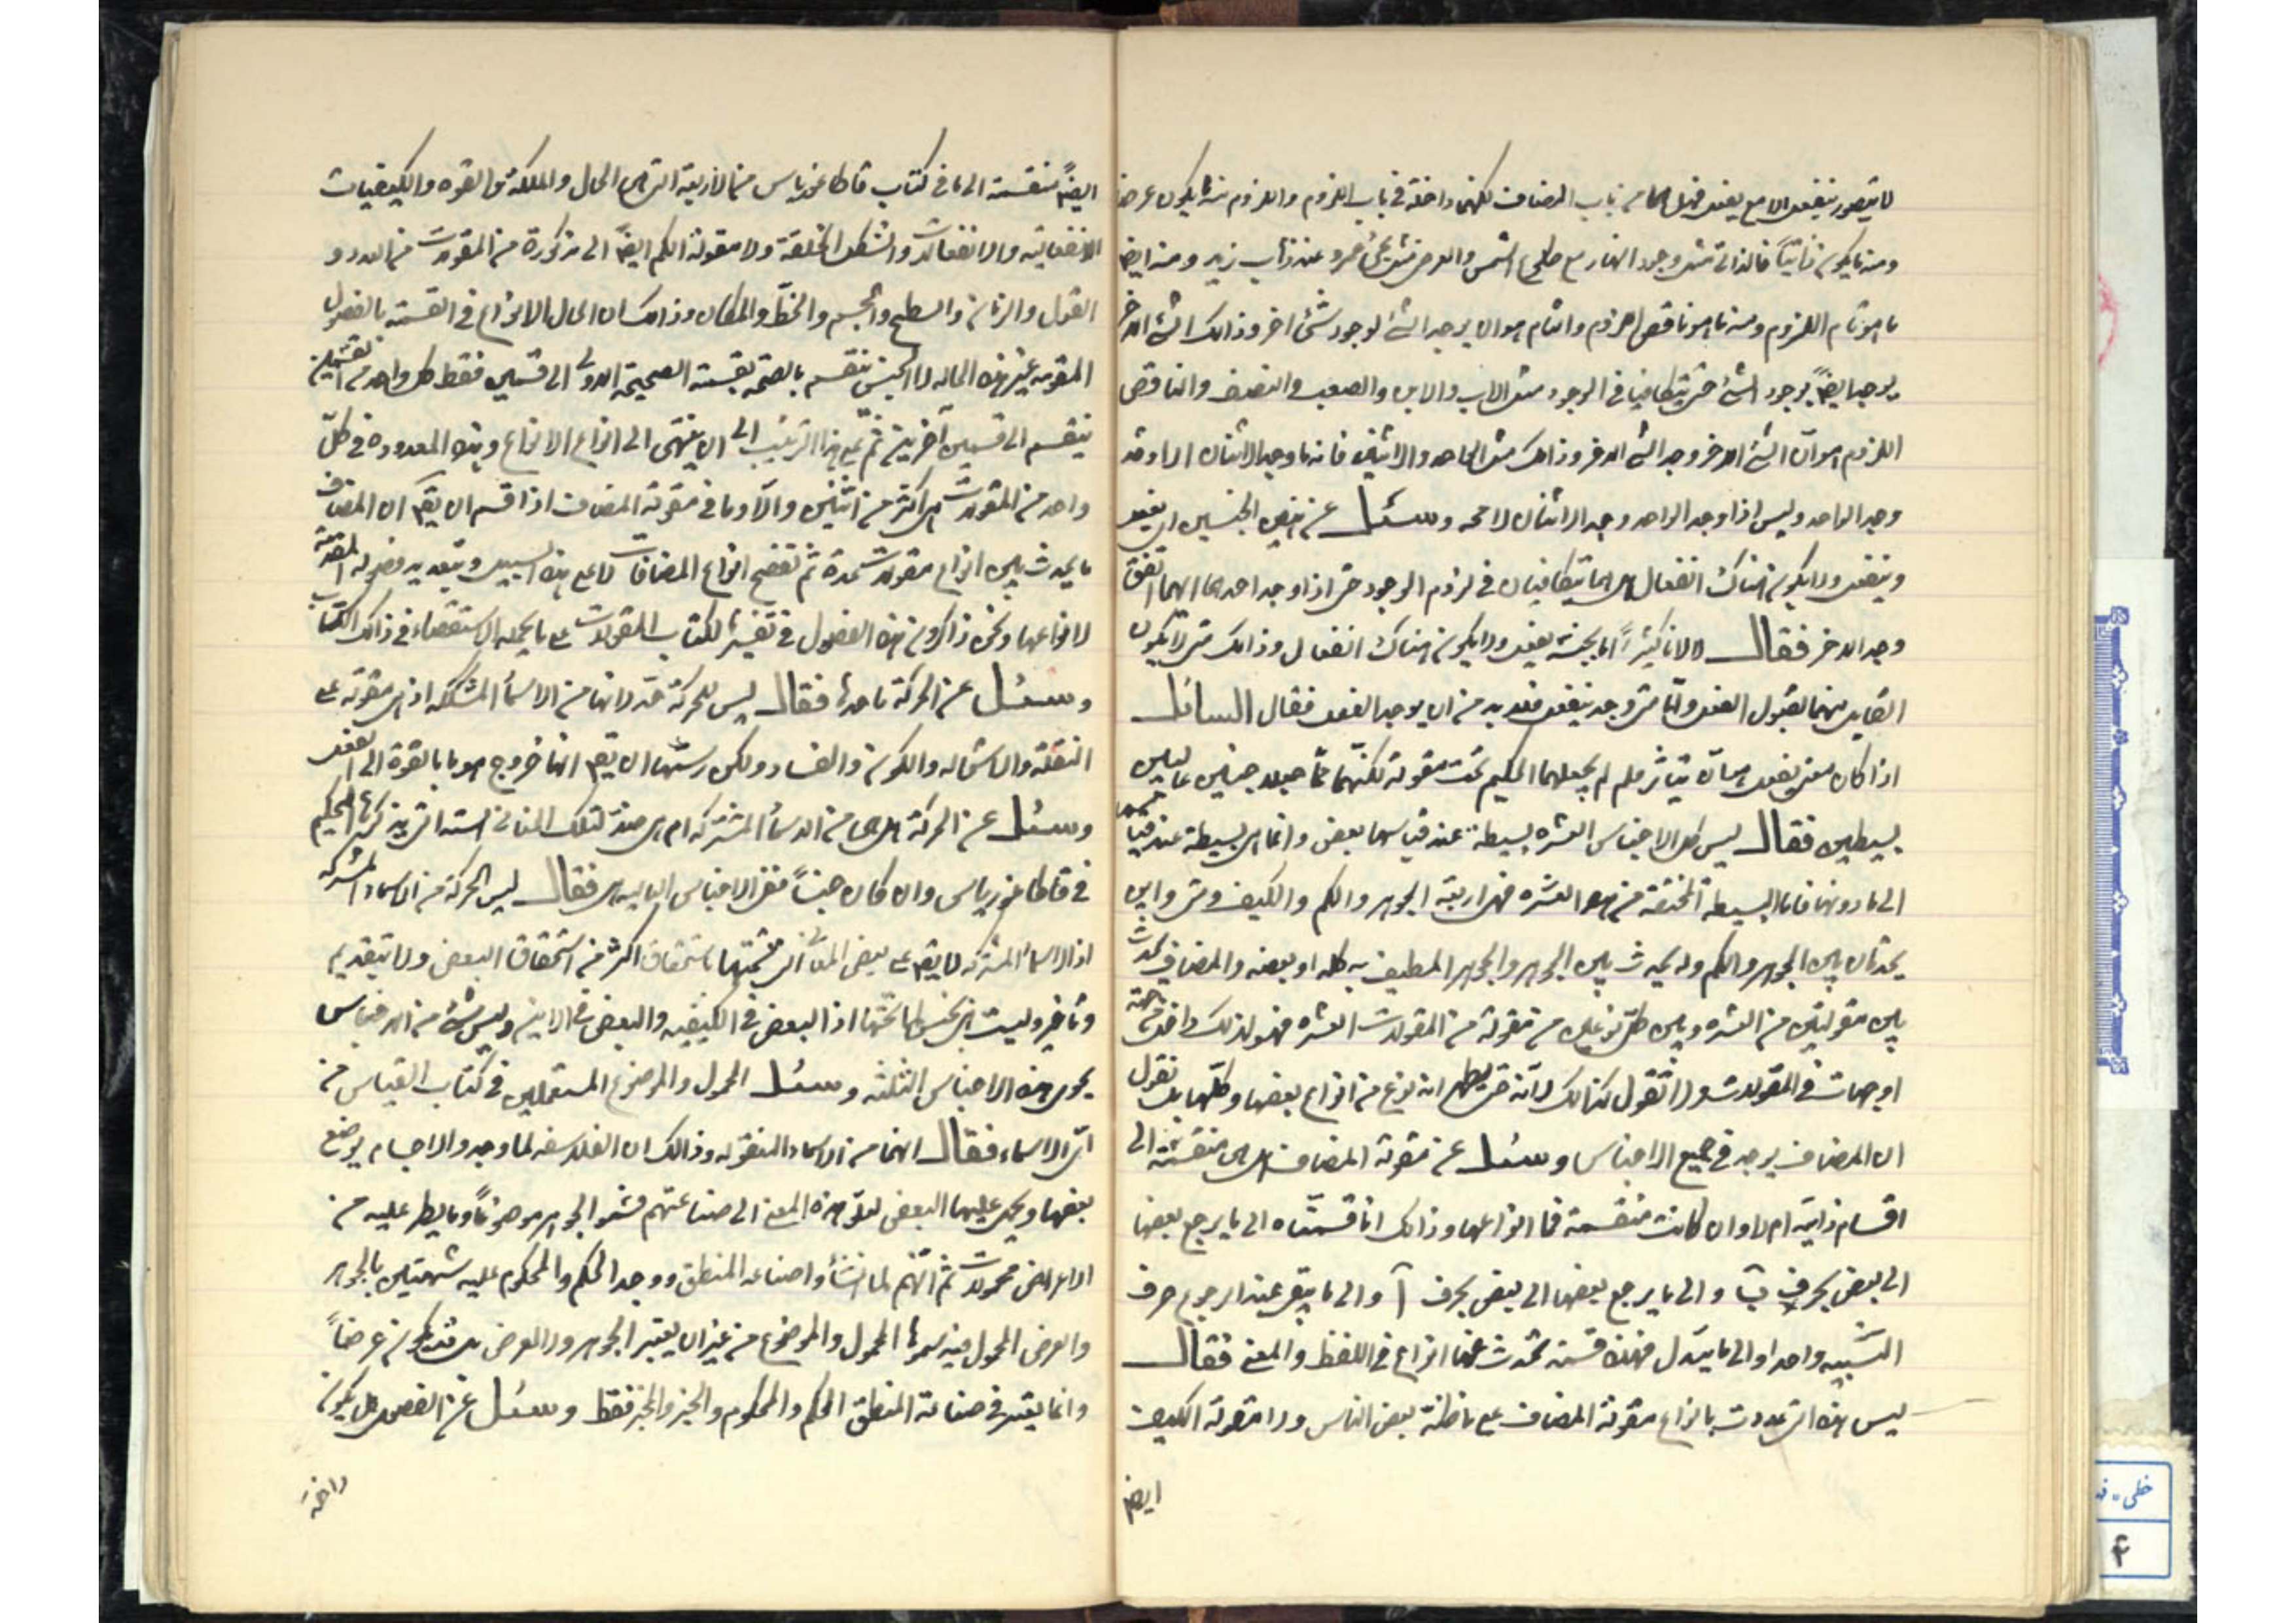 لا يتصور ينفعل الا مع يفعل فهل هما من باب المضاف لكنهما داخلة في باب اللزوم واللزوم منه ما يكون عرضيا
ومنه ما يكون ذاتيًا فالذاتي مثل وجود النهار مع طلوع الشمس والعرضي مثل مجئ عمرو عند ذهاب زيد ومنه ايضا
ما هو تام اللزوم ومنه ما هو ناقص اللزوم والتام هو ان يوجد الشئ لوجود شئ اخر وذالك الشئ الاخر
يوجد ايضًا بوجود الشئ حتى يتكافيا في الوجود مثل الاب والابن والضعف والنصف والناقص
اللزوم هو ان الشئ الاخر وجد الشئ الاخر وذالك مثل الواحد والاثنين فانه ما وجد الاثنان الا وقد
وجد الواحد وليس اذا وجد الواحد وجد الاثنان لا محه وسئل عن هذين الجنسين اي يفعل
وينفعل ولا يكون هناك انفعال هل هما يتكافيان في لزوم الوجود حتى اذا وجد احدهما ايهما اتفق
وجد الاخر فقال لا لانا كثيرًا ما نجد يفعل ولا يكون هناك انفعال وذالك متى لا يكون
القابل متهيئا لقبول الفعل واما متى وجد ينفعل فلابد من ان يوجد الفعل فقال السائل
اذا كان معنى يفعل هو ان يتأثر فلم لم يجعلهما الحكيم تحت مقولة لكنهما مما جعلا جنسين عاليين
بسيطين فقال ليس كل الاجناس العشره بسيطة عند قياسها بعض وانما هي بسيطة عند قياسها
الى ما دونها فاما البسيطة المحضة من هذه العشره فهى اربعة الجوهر والكم والكيف ومتى واين
يحدثان بين الجوهر والكم وله يحدث بين الجوهر والجوهر المطيف به كله او بعضه والمضاف يحدث
بين مقولتين من العشره وبين كل نوعين من مقولة من المقولات العشره فهو لذلك داخل تحته
او جهات في المقولات ولا نقول كذالك لانه متى يظهر انه نوع من انواع بعضها وكلها بل نقول
ان المضاف يوجد في جميع الاجناس وسئل عن مقولة المضاف هل هي منقسمة الى
اقسام ذاتية ام لا وان كانت منقسمة فما انواعها وذالك انا قسمناه الى ما يرجع بعضها
الى بعض بحرف ب والى ما يرجع بعضها الى بعض بحرف آ والى ما يتفق عند الرجوع حرف
النسبه واحدا والى ما يتبدل فهذه قسمة تحدث عنها انواع في اللفظ والمعنى فقال
ليس هذه التى عددت بانواع مقولة المضاف على ما ظنه بعض الناس ولا مقولة الكيف
ايضا
ايضًا منقسمة الى ما في كتاب قاطاغورياس من الاربعة التى هي الحال والملكة والقوه والكيفيات
الانفعاليه والانفعالات والشكل والخلقة ولا مقولة الكم ايضًا الى مذكورة من المقولات من العدد و
القول والزمان والسطح والجسم والخط والمكان وذالك ان الحال الانواع في القسمة بالفصول
المقومه غير هذه الحاله لان الجنس ينقسم بالصحه بقسمته الصحيحة الاولى الى قسمين فقط كل واحد من القسمين
ينقسم الى قسمين آخرين ثم على هذا الترتيب الى ان ينتهى الى انواع الانواع وهذه المعدوده في كل
واحد من المقولات هى اكثر من اثنين والاولى في مقولة المضاف اذا قسم ان يقم ان المضاف
ما يحدث بين انواع مقولات عدة ثم تفصح انواع المضافات لا على هذه السبيل وبتعديد فصوله المقومة
لانواعها ونحن ذاكرون هذه الفصول في تفسيرنا لكتاب المقولات على ما يحمله الاستقصاء في ذالك الكتاب
وسئل عن الحركة ما حدها فقال ليس للحركة حد لانها من الاسماء المشككه اذ هى مقوله على
النقلة والاستحاله والكون والفساد ولكن رسمها ان يقم انها خروج هو ما بالقوة الى الفعل
وسئل عن الحركة هل هى من الاسماء المشتركه ام هى جنس لتلك المعانى السته التى يذكرها الحكيم
في قاطاغورياس وان كان جنسًا فمن الاجناس العاليه هى فقال ليس الحركة من الاسماء المشتركه
اذ الاسماء المشتركه لا يقم على بعض المعانى التى تحتها باستحقاق اكثر من استحقاق البعض ولا بتقديم
وتأخير وليست هى بجنس لما تحتها اذا البعض في الكيفيه والبعض في الاين وليس شئ من الاجناس
يحوى هذه الاجناس الثلثه وسئل المحمول والموضوع المستعملين في كتاب القياس من
اى الاسماء فقال انهما من الاسماء المنقوله وذالك ان الفلاسفه لما وجدوا الاجسام يوضع
بعضها ويحمل عليها البعض نقلوا هذه المعنى الى صناعتهم فسموا الجوهر موضوعًا وما يطر عليه من
الاعراض محمولات ثم انهم لما انشأوا صناعه المنطق ووجد الحكم والمحكوم عليه شبيهين بالجوهر
والعرض المحمول فيه سموها المحمول والموضوع من غير ان يعتبر الجوهر ولا العرض بل قد يكون عرضًا
وانما يعتبر في صناعة المنطق الحكم والمحكوم والخبر والمخبر فقط وسئل عن الفصل هل يكون
داخلة
خطى
۴